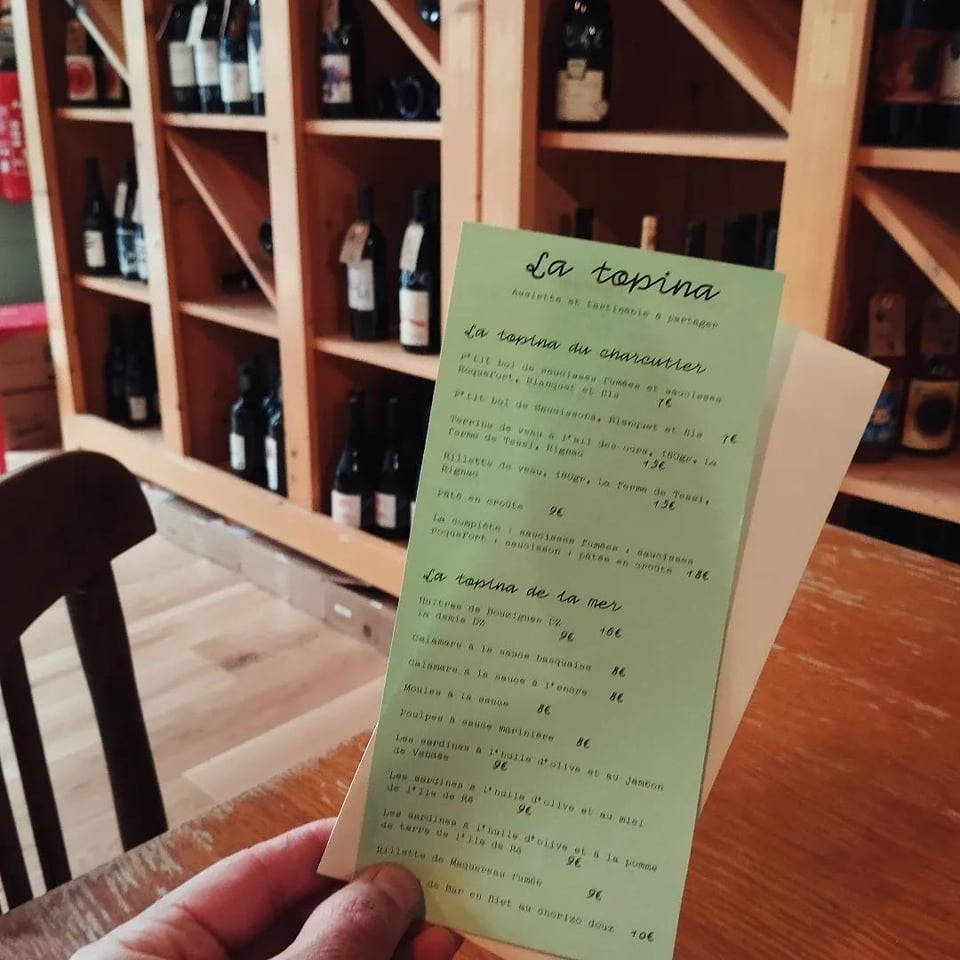 La topina
Assiette et tartinable à partager
La topina du charcutier
P'tit bol de saucisses fumées et saucisses
Roquefort, Blanquet et fils 7€
P'tit bol de Saucissons, Blanquet et fils 7€
Terrine de veau à l'ail des ours, 180gr, la
ferme de Tessi, Rignac 12€
Rillette de veau, 180gr, la ferme de Tessi,
Rignac 12€
Pâté en croûte 9€
La complète : saucisses fumées , saucisses
roquefort , saucisson , pâtés en croûte 18€
La topina de la mer
Huîtres de Bouzigues DZ 16€
la demie DZ 9€
Calamars à la sauce basquaise 8€
Calamars à la sauce à l'encre 8€
Moules à la sauce 8€
Poulpes à sauce marinière 8€
Les sardines à l'huile d'olive et au jambon
de Vendée 9€
Les sardines à l'huile d'olive et au miel
de l'île de Ré 9€
Les sardines à l'huile d'olive et à la pomme
de terre de l'île de Ré 9€
Rillette de Maquereau fumée 9€
de Bar en filet au chorizo doux 10€